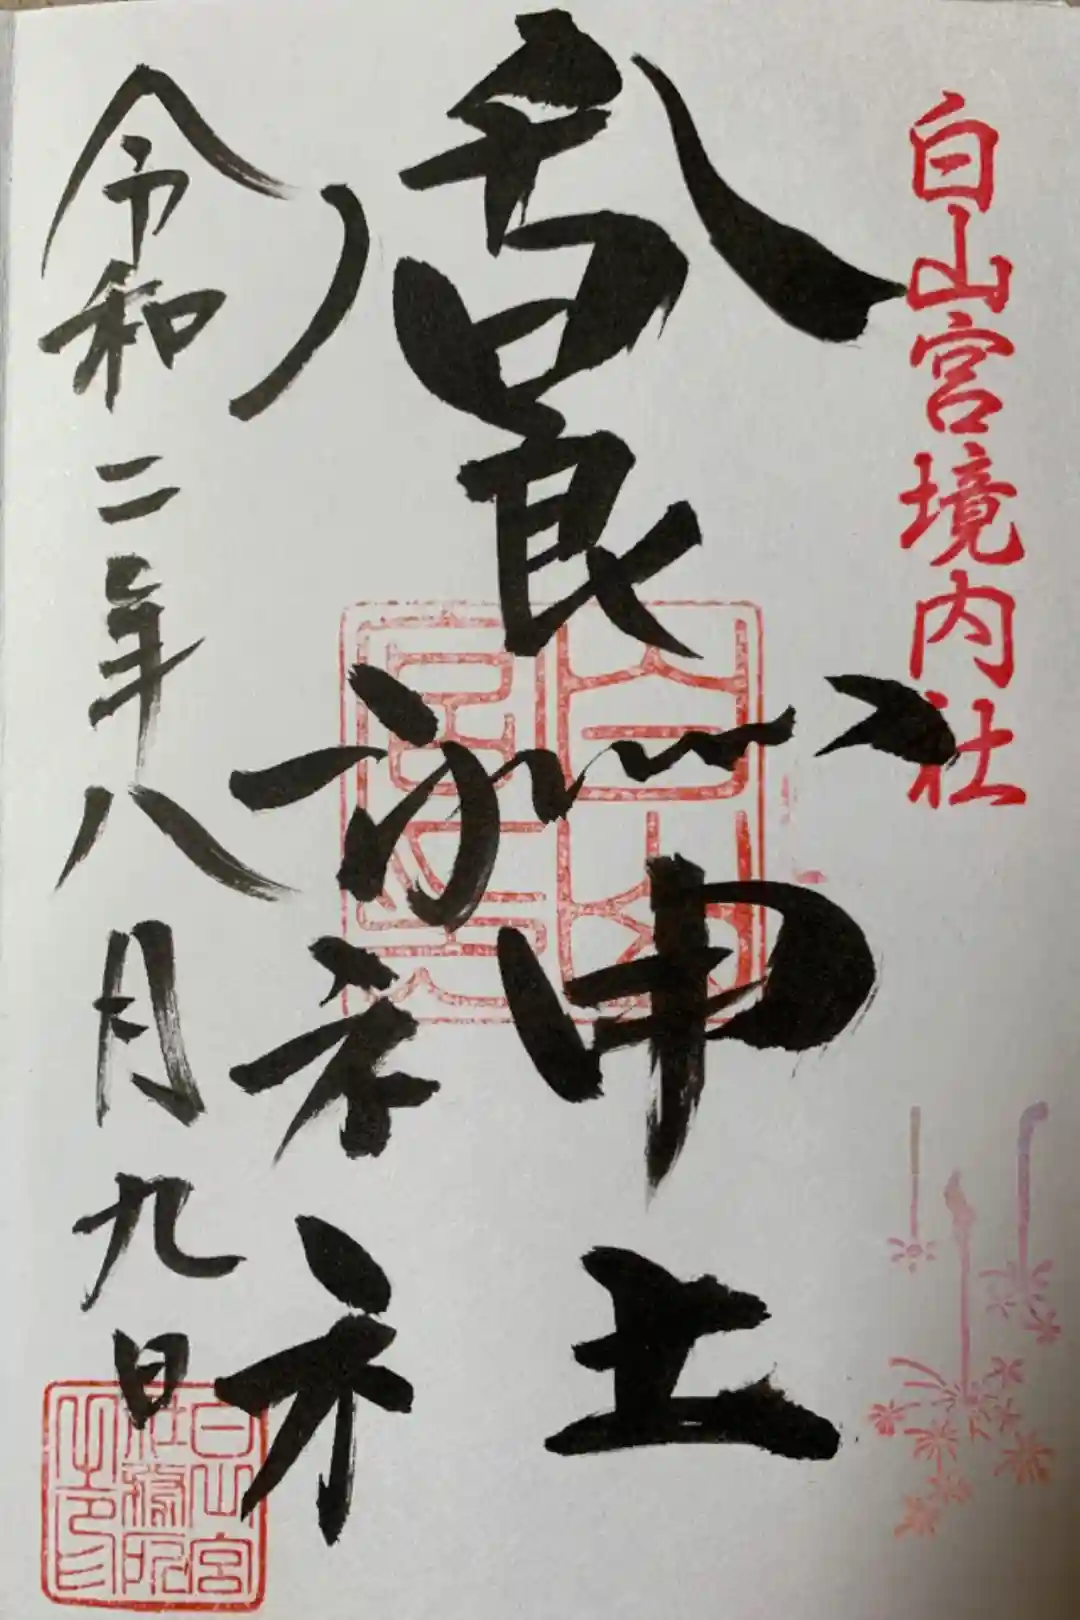 白山宮境内社
香良
神社
令和二年八月九日
白山宮
社務所
之印